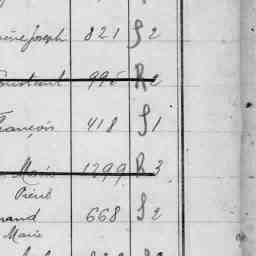 Joseph 821 S 2
Constant 996 R 2
François 418 S 1
Marie 1299 R 3
Pierre
668 S 2
Marie